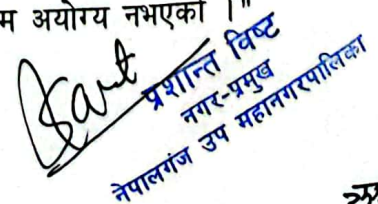 म अयोग्य नभएको ।"
प्रशान्त विष्ट
नगर-प्रमुख
नेपालगंज उप महानगरपालिका